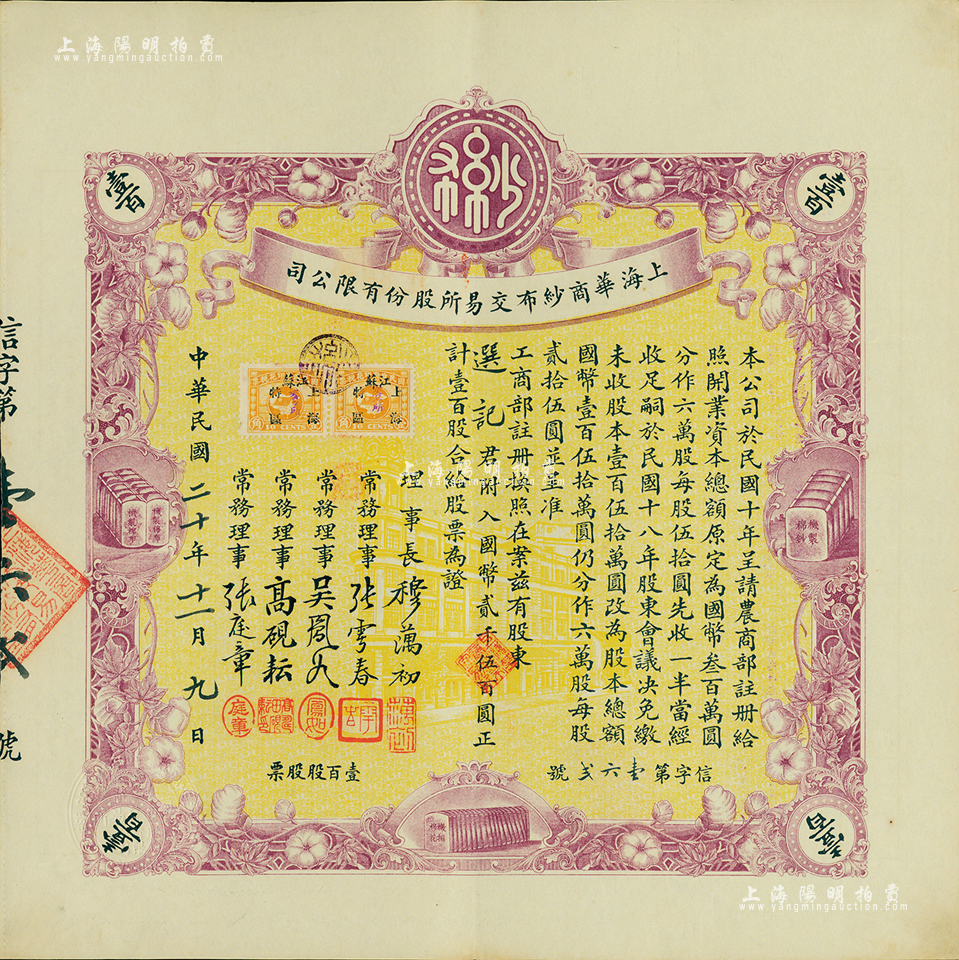 上海陽明拍賣
www.yangmingauction.com
紗布
壹百
壹百
上海華商紗布交易所股份有限公司
本公司於民國十年呈請農商部註册給
照開業資本總額原定為國幣叁百萬圓
分作六萬股每股伍拾圓先收一半當經
收足嗣於民國十八年股東會議决免繳
未收股本壹百伍拾萬圓改為股本總額
國幣壹百伍拾萬圓仍分作六萬股每股
貳拾伍圓並呈准
工商部註册換照在案茲有股東
選記君附入國幣貳千伍百圓正
計壹百股合給股票為證
理事長穆藕初
常務理事張雲春
常務理事吳鳳九
常務理事高硯耘
常務理事張庭章
中華民國二十年十一月九日
江蘇
上海
特區
10 CENTS
江蘇
上海
特區
10 CENTS
機製棉料
信字第壹六弐號
壹百股股票
信字第
號
壹百
壹百
上海陽明拍賣
www.yangmingauction.com
上海陽明拍賣
www.yangmingauction.com